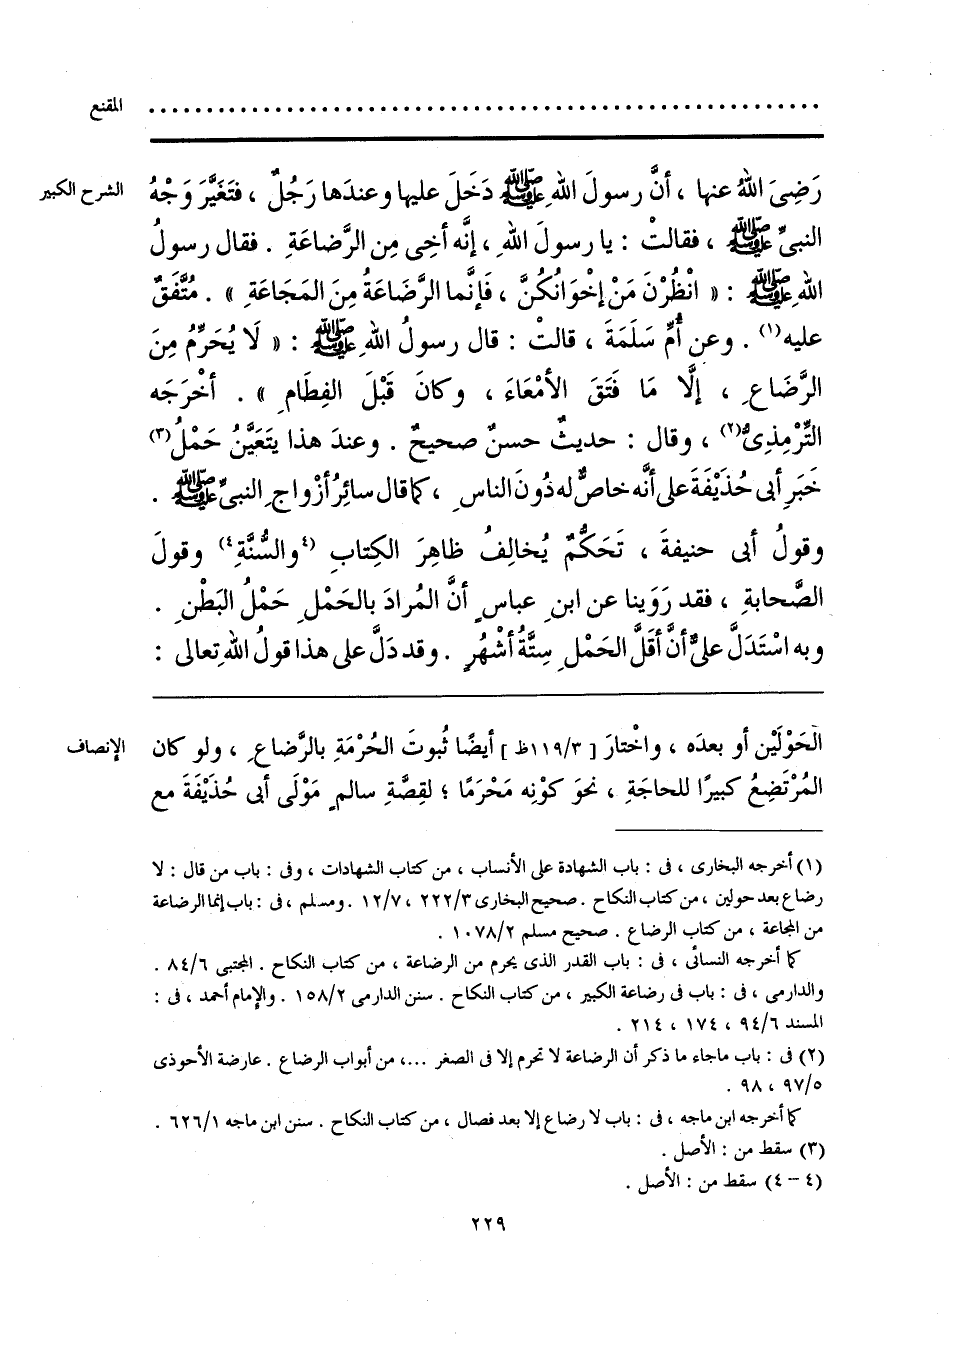 المقنع ............................................................
الشرح الكبير رَضِىَ اللهُ عنها ، أنَّ رسولَ اللهِ ﷺ دَخَلَ عليها وعندَها رَجُلٌ ، فتَغَيَّرَ وَجْهُ
النبىِّ ﷺ ، فقالتْ : يا رسولَ اللهِ ، إنَّه أخِى مِن الرَّضاعَةِ . فقال رسولُ
اللهِ ﷺ : « انْظُرْنَ مَنْ إخْوَانُكُنَّ ، فَإنَّما الرَّضَاعَةُ مِنَ المَجَاعَةِ » . مُتَّفَقٌ
عليه(١) . وعن أُمِّ سَلَمَةَ ، قالتْ : قال رسولُ اللهِ ﷺ : « لَا يُحَرِّمُ مِنَ
الرَّضَاعِ ، إلَّا مَا فَتَقَ الأمْعَاءَ ، وكانَ قَبْلَ الفِطَامِ » . أخْرَجَه
التِّرْمِذِىُّ(٢) ، وقال : حديثٌ حسنٌ صحيحٌ . وعندَ هذا يَتَعَيَّنُ حَمْلُ(٣)
خَبَرِ أبى حُذَيْفَةَ على أنَّه خاصٌّ له دُونَ الناسِ ، كما قال سائِرُ أزْواجِ النبىِّ ﷺ .
وقولُ أبى حنيفةَ ، تَحَكُّمٌ يُخالِفُ ظاهِرَ الكِتابِ (٤والسُّنَّةِ٤) وقولَ
الصَّحابةِ ، فقد رَوَينا عن ابنِ عباسٍ أنَّ المُرادَ بالحَمْلِ حَمْلُ البَطْنِ .
وبه اسْتَدَلَّ علىٌّ أنَّ أقَلَّ الحَمْلِ سِتَّةُ أشْهُرٍ . وقد دَلَّ على هذا قولُ اللهِ تعالى :
الإنصاف الحَوْلَيْن أو بعدَه ، واخْتارَ [ ١١٩/٣ظ ] أيضًا ثُبوتَ الحُرْمَةِ بالرَّضاعِ ، ولو كان
المُرْتَضِعُ كبيرًا للحاجَةِ ، نحوَ كوْنِه مَحْرَمًا ؛ لقِصَّةِ سالمٍ مَوْلَى أبى حُذَيْفَةَ مع
(١) أخرجه البخارى ، فى : باب الشهادة على الأنساب ، من كتاب الشهادات ، وفى : باب من قال : لا
رضاع بعد حولين ، من كتاب النكاح . صحيح البخارى ٢٢٢/٣ ، ١٢/٧ . ومسلم ، فى : باب إنما الرضاعة
من المجاعة ، من كتاب الرضاع . صحيح مسلم ١٠٧٨/٢ .
كما أخرجه النسائى ، فى : باب القدر الذى يحرم من الرضاعة ، من كتاب النكاح . المجتبى ٨٤/٦ .
والدارمى ، فى : باب فى رضاعة الكبير ، من كتاب النكاح . سنن الدارمى ١٥٨/٢ . والإمام أحمد ، فى :
المسند ٩٤/٦ ، ١٧٤ ، ٢١٤ .
(٢) فى : باب ماجاء ما ذكر أن الرضاعة لا تحرم إلا فى الصغر ...، من أبواب الرضاع . عارضة الأحوذى
٩٧/٥ ، ٩٨ .
كما أخرجه ابن ماجه ، فى : باب لا رضاع إلا بعد فصال ، من كتاب النكاح . سنن ابن ماجه ٦٢٦/١ .
(٣) سقط من : الأصل .
(٤ – ٤) سقط من : الأصل .
٢٢٩